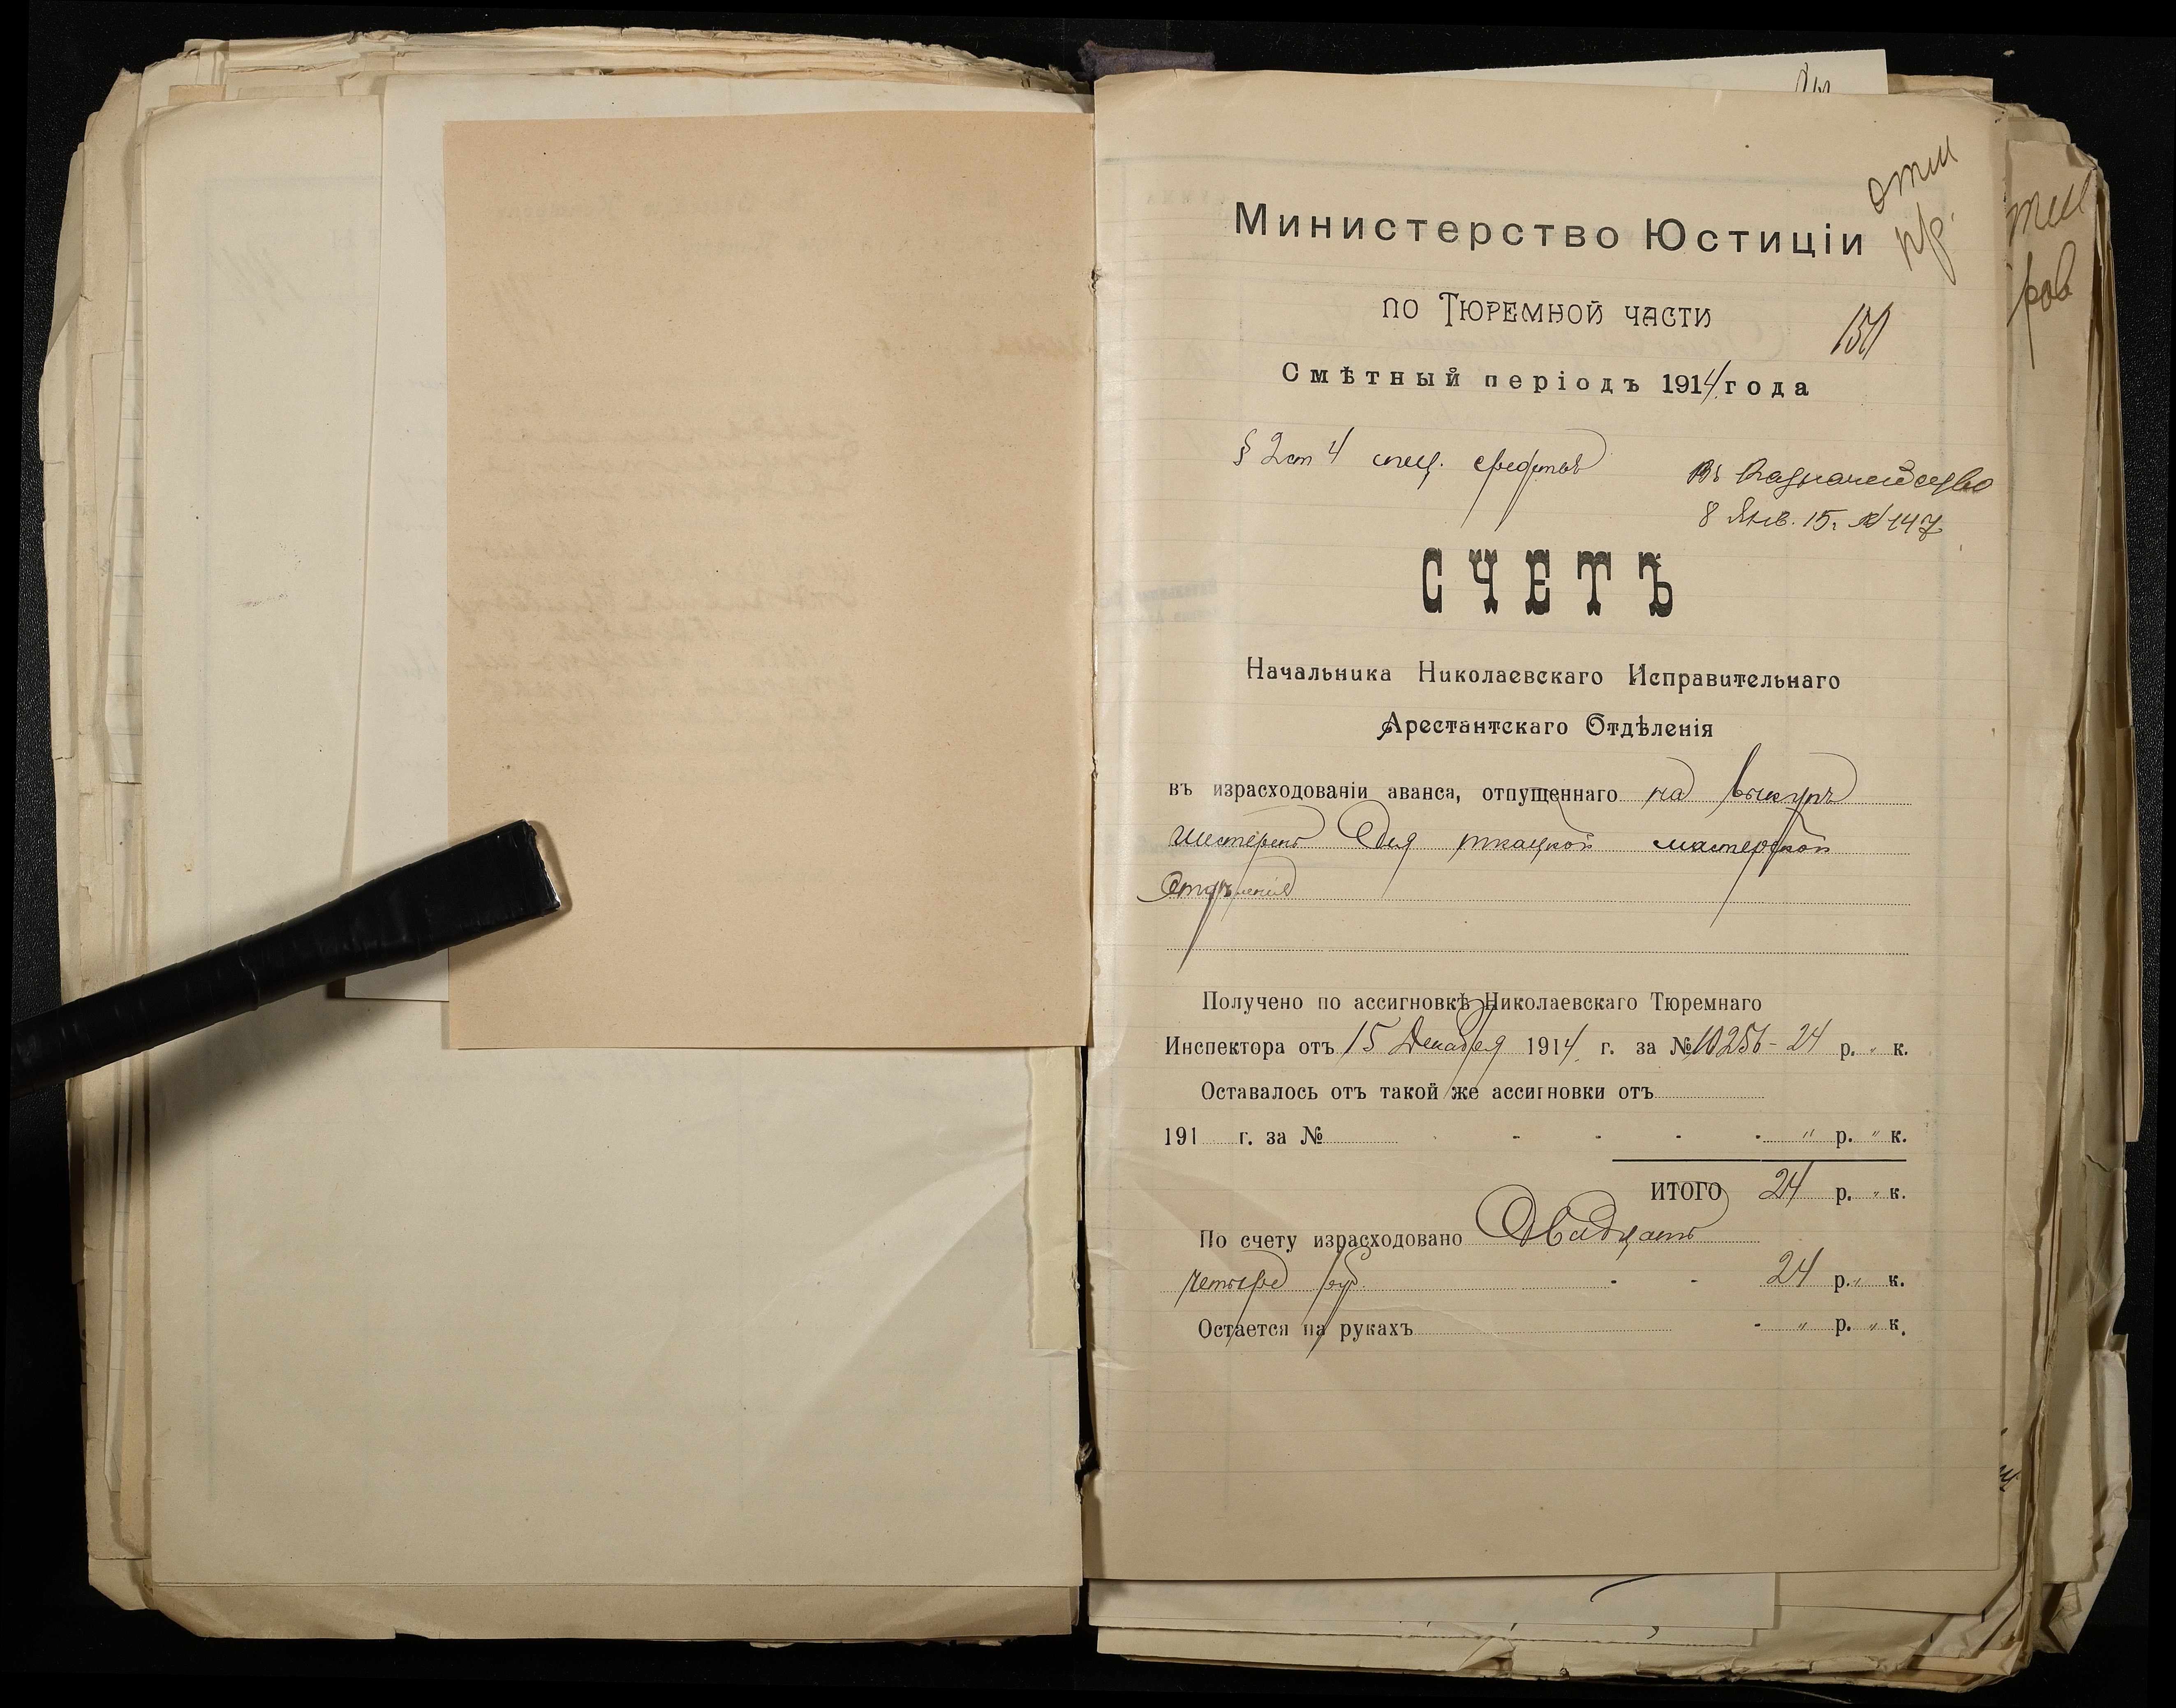 отм
пр.
Министерство Юстиціи
по Тюремной части
Смѣтный періодъ 1914 года
§ 2 ст 4 спец. средствъ
Въ Казначейство
8 Янв. 15 г. № 147
СЧЕТЪ
Начальника Николаевскаго Исправительнаго
Арестантскаго Отдѣленія
въ израсходованіи аванса, отпущеннаго на выкупъ
шестерень для ткацкой мастерской
Отдѣленія
Получено по ассигновкѣ Николаевскаго Тюремнаго
Инспектора отъ 15 Декабря 1914 г. за № 10256 - 24 р. " к.
Оставалось отъ такой же ассигновки отъ
191 г. за № - - - - " р. " к.
ИТОГО 24 р. " к.
По счету израсходовано Двадцать
четыре руб. - - 24 р. " к.
Остается на рукахъ - " р. " к.